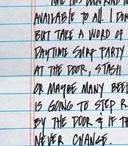 AVAILABLE TO ALL I DON
BUT TAKE A WORD OF
DAYTIME SURF PARTY
AT THE DOOR, STASH
OR MAYBE MANY BEE
IS GOING TO STOP R
BY THE DOOR & IF T
NEVER CHANGE.